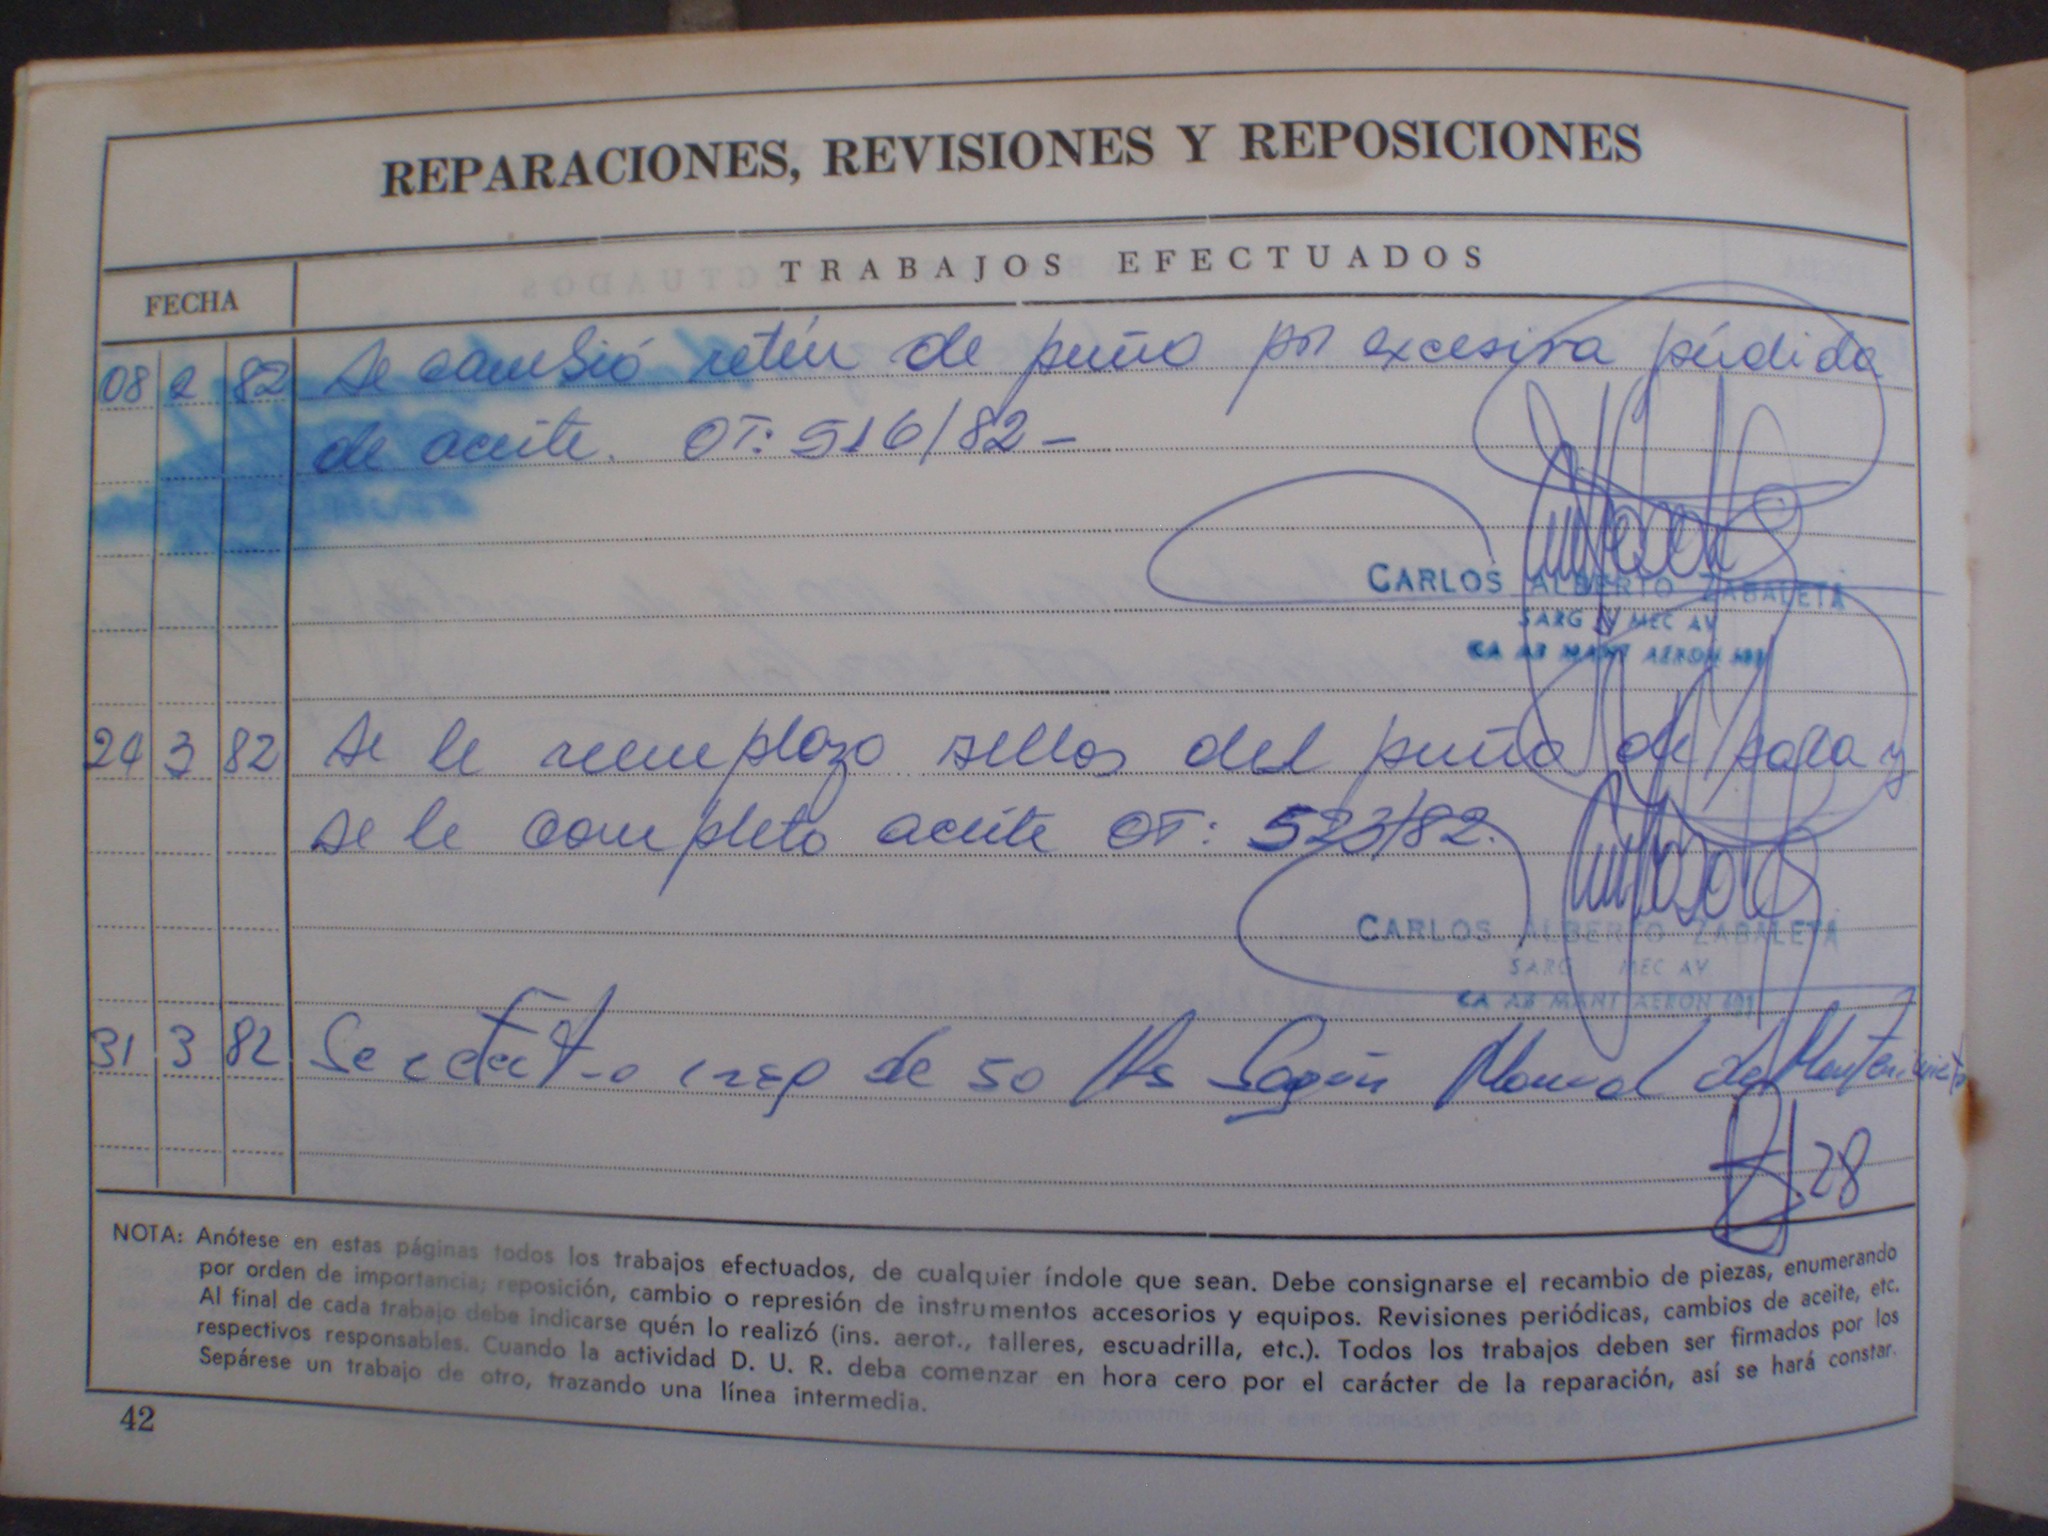 REPARACIONES, REVISIONES Y REPOSICIONES
FECHA
TRABAJOS EFECTUADOS
08 2 82 Se cambió retén de puño por excesiva pérdida
de aceite. OT: 516/82 -
CARLOS ALBERTO ZABALETA
SARG MEC AV
CA AB MANT AERON 601
24 3 82 Se le reemplazo sellos del puño de pala y
se le completo aceite OT: 523/82.
CARLOS ALBERTO ZABALETA
SARG MEC AV
CA AB MANT AERON 601
31 3 82 Se efectuo insp de 50 Hs Según Manual de Mantenimiento
28
NOTA: Anótese en estas páginas todos los trabajos efectuados, de cualquier índole que sean. Debe consignarse el recambio de piezas, enumerando
por orden de importancia; reposición, cambio o represión de instrumentos accesorios y equipos. Revisiones periódicas, cambios de aceite, etc.
Al final de cada trabajo debe indicarse quén lo realizó (ins. aerot., talleres, escuadrilla, etc.). Todos los trabajos deben ser firmados por los
respectivos responsables. Cuando la actividad D. U. R. deba comenzar en hora cero por el carácter de la reparación, así se hará constar.
Sepárese un trabajo de otro, trazando una línea intermedia.
42